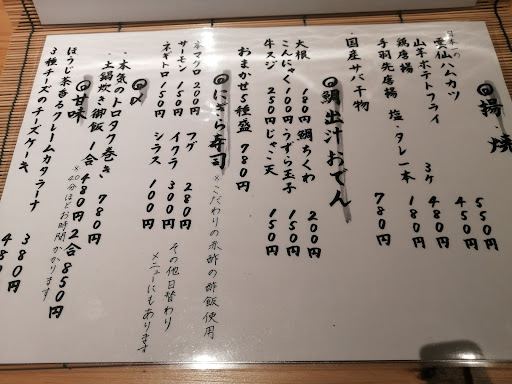 ◎揚・焼
雲仙ハムカツ 550円
山芋ポテトフライ 450円
鶏唐揚 3ヶ 480円
手羽先唐揚 塩・タレ 一本 180円
・国産サバ干物 780円
◎鯛出汁おでん
大根 180円 鯛ちくわ 200円
こんにゃく 100円 うずら玉子 150円
牛スジ 250円 じゃこ天 150円
おまかせ5種盛 780円
◎にぎり寿司 ※こだわりの赤酢の酢飯使用
本マグロ 200円 フグ 280円 その他日替わり
サーモン 150円 イクラ 300円 メニューにもあります
ネギトロ 150円 シラス 100円
◎〆
・本気のトロタク巻き 780円
・土鍋炊き御飯 1合 480円 2合 850円
※40分ほどお時間かかります
◎甘味
ほうじ茶香るクレームカタラーナ 380円
3種チーズのチーズケーキ 480円